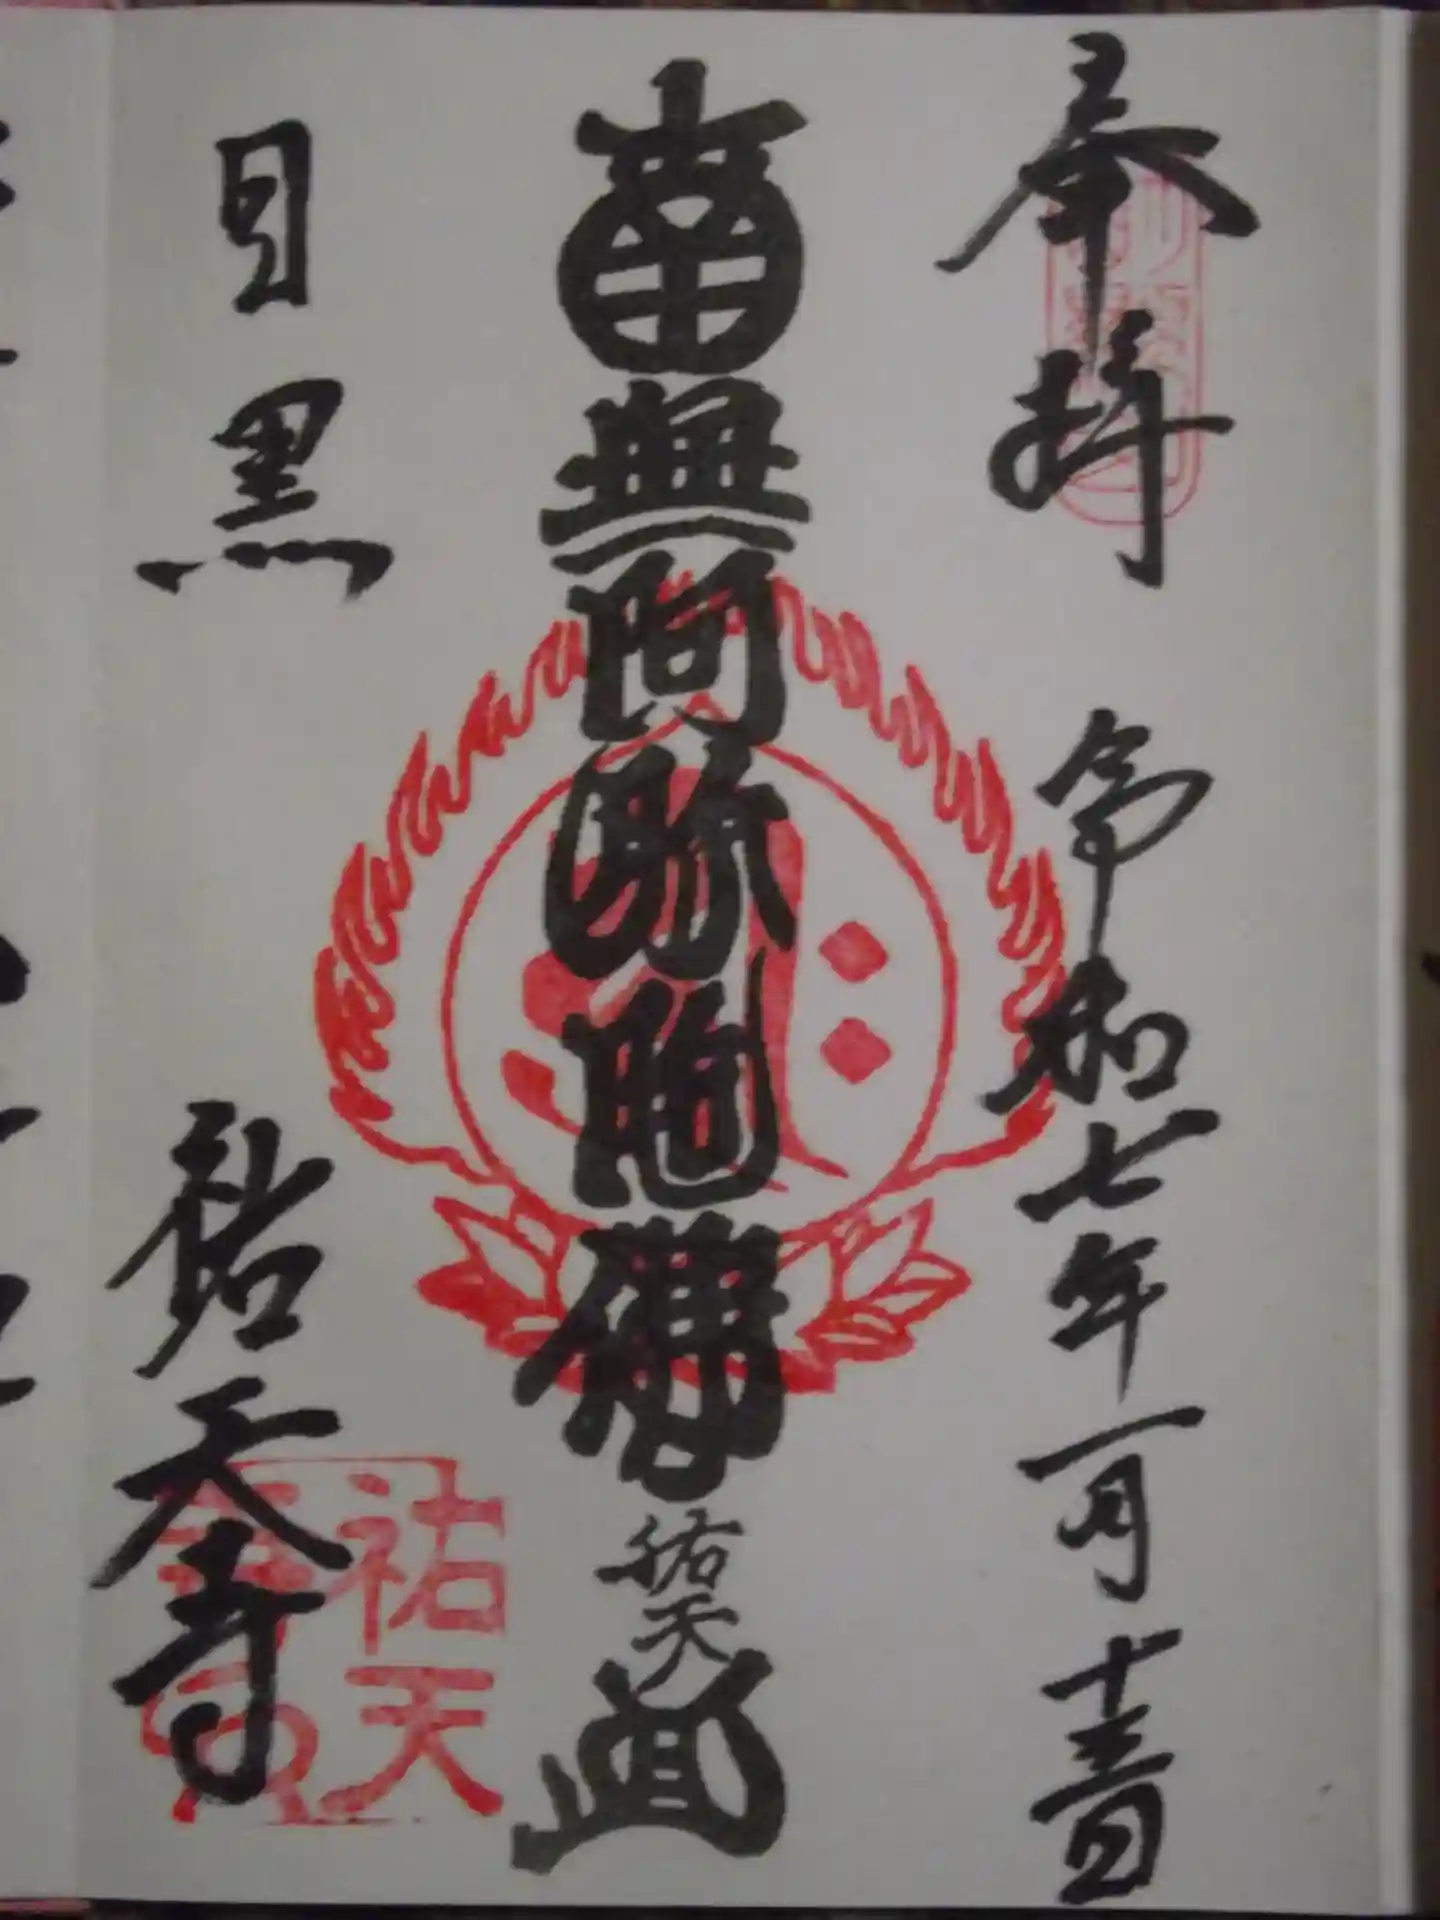 奉拝 令和七年一月十三日
南無阿弥陀佛 祐天
目黒 祐天寺
祐天
寺印